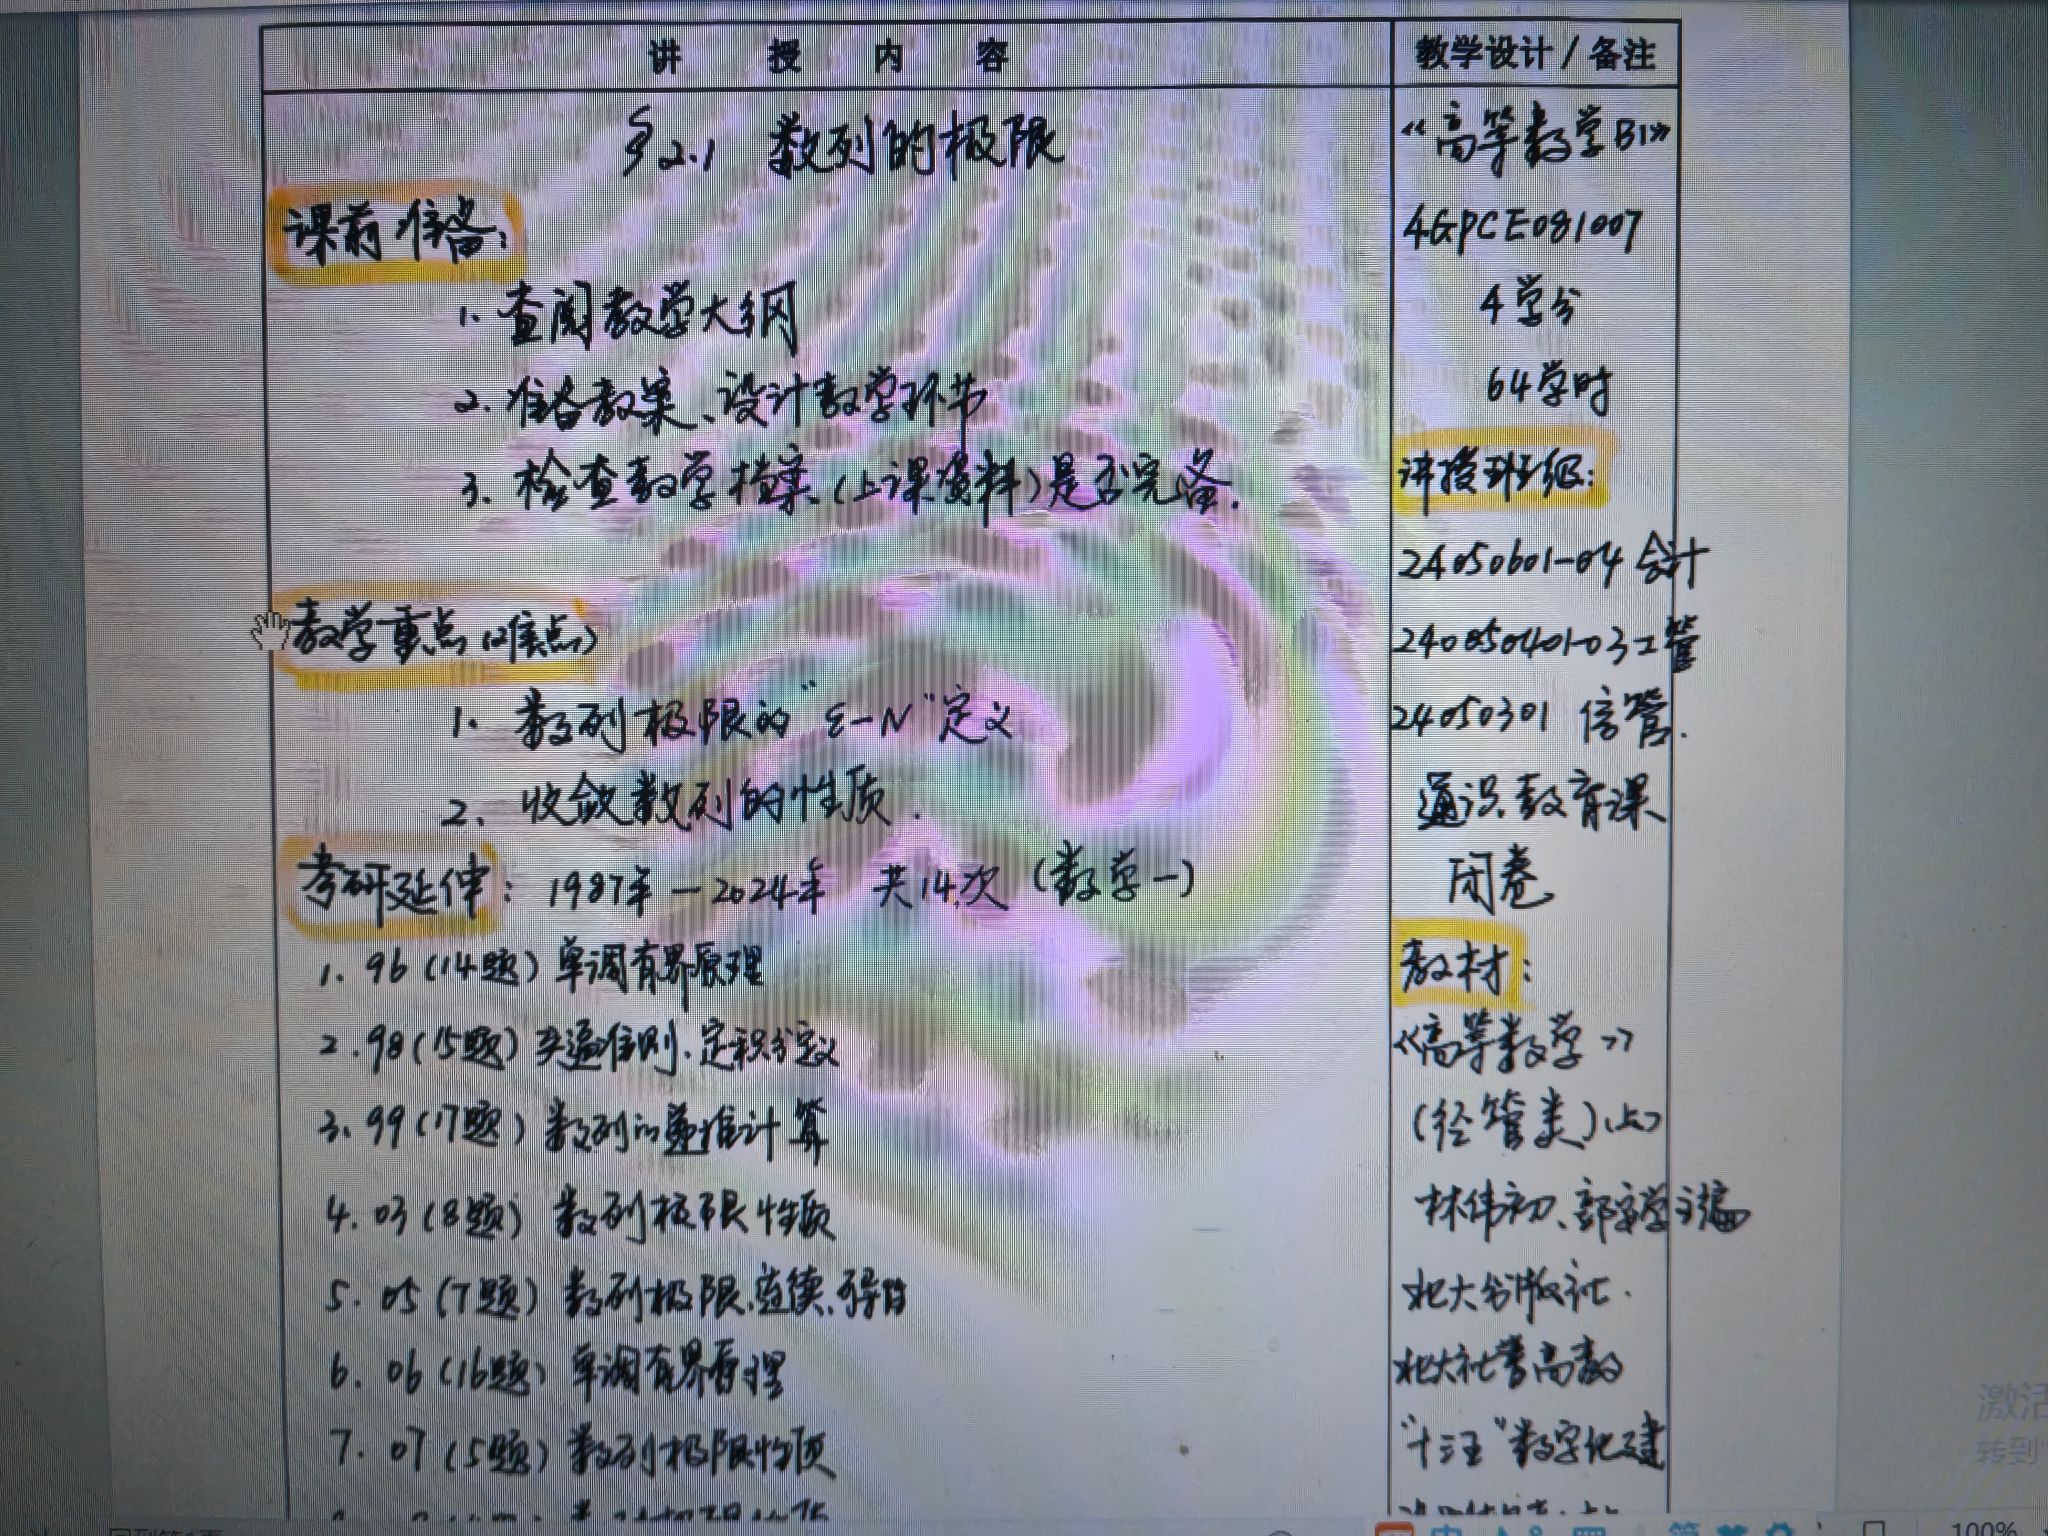 讲授内容
§2.1 数列的极限
课前准备:
1. 查阅教学大纲
2. 准备教案、设计教学环节
3. 检查教学档案(上课资料)是否完备.
教学重点(难点)
1. 数列极限的"ε-N"定义
2. 收敛数列的性质.
考研延伸: 1987年-2024年 共14次(数学一)
1. 96(14题) 单调有界原理
2. 98(15题) 夹逼准则. 定积分定义
3. 99(17题) 数列的递推计算
4. 03(8题) 数列极限性质
5. 05(7题) 数列极限.连续.
6. 06(16题) 单调有界原理
7. 07(5题) 数列极限性质
教学设计/备注
《高等数学B1》
4GPCE081007
4学分
64学时
讲授班级:
24050601-04 会计
240050401-03工管
24050301 信管.
通识教育课
闭卷
教材:
《高等数学》
(经管类)(上)
林伟初、郭安学主编
北大出版社.
北大社普高教
"十三五"数字化建
激活
转到
100%